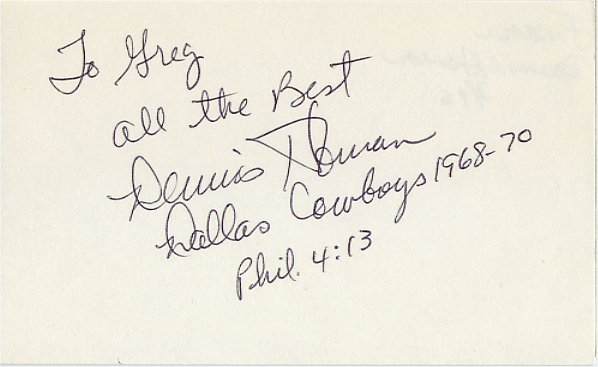 To Greg
all the Best
Dennis Homan
Dallas Cowboys 1968-70
Phil. 4:13